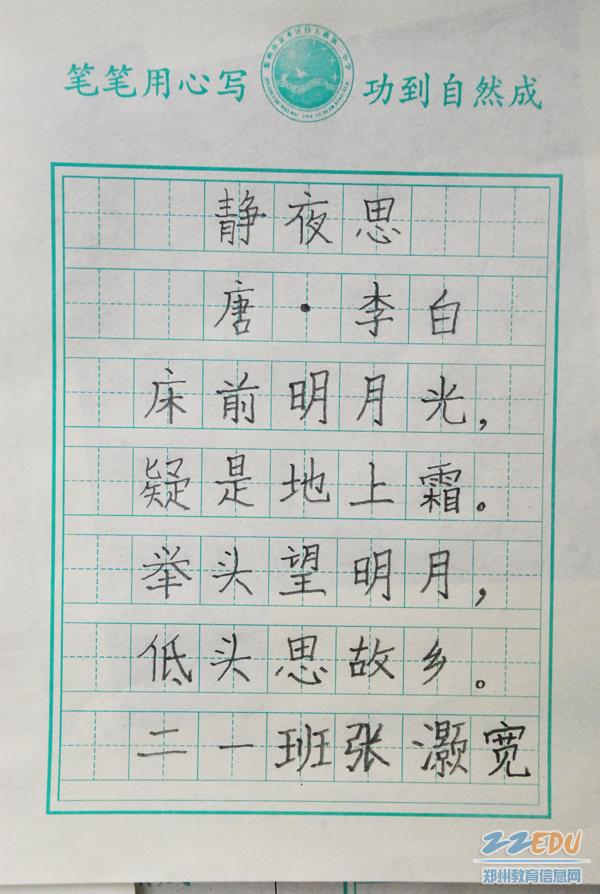 笔笔用心写 功到自然成
静夜思
唐·李白
床前明月光，
疑是地上霜。
举头望明月，
低头思故乡。
二一班张灏宽
ZZEDU
郑州教育信息网